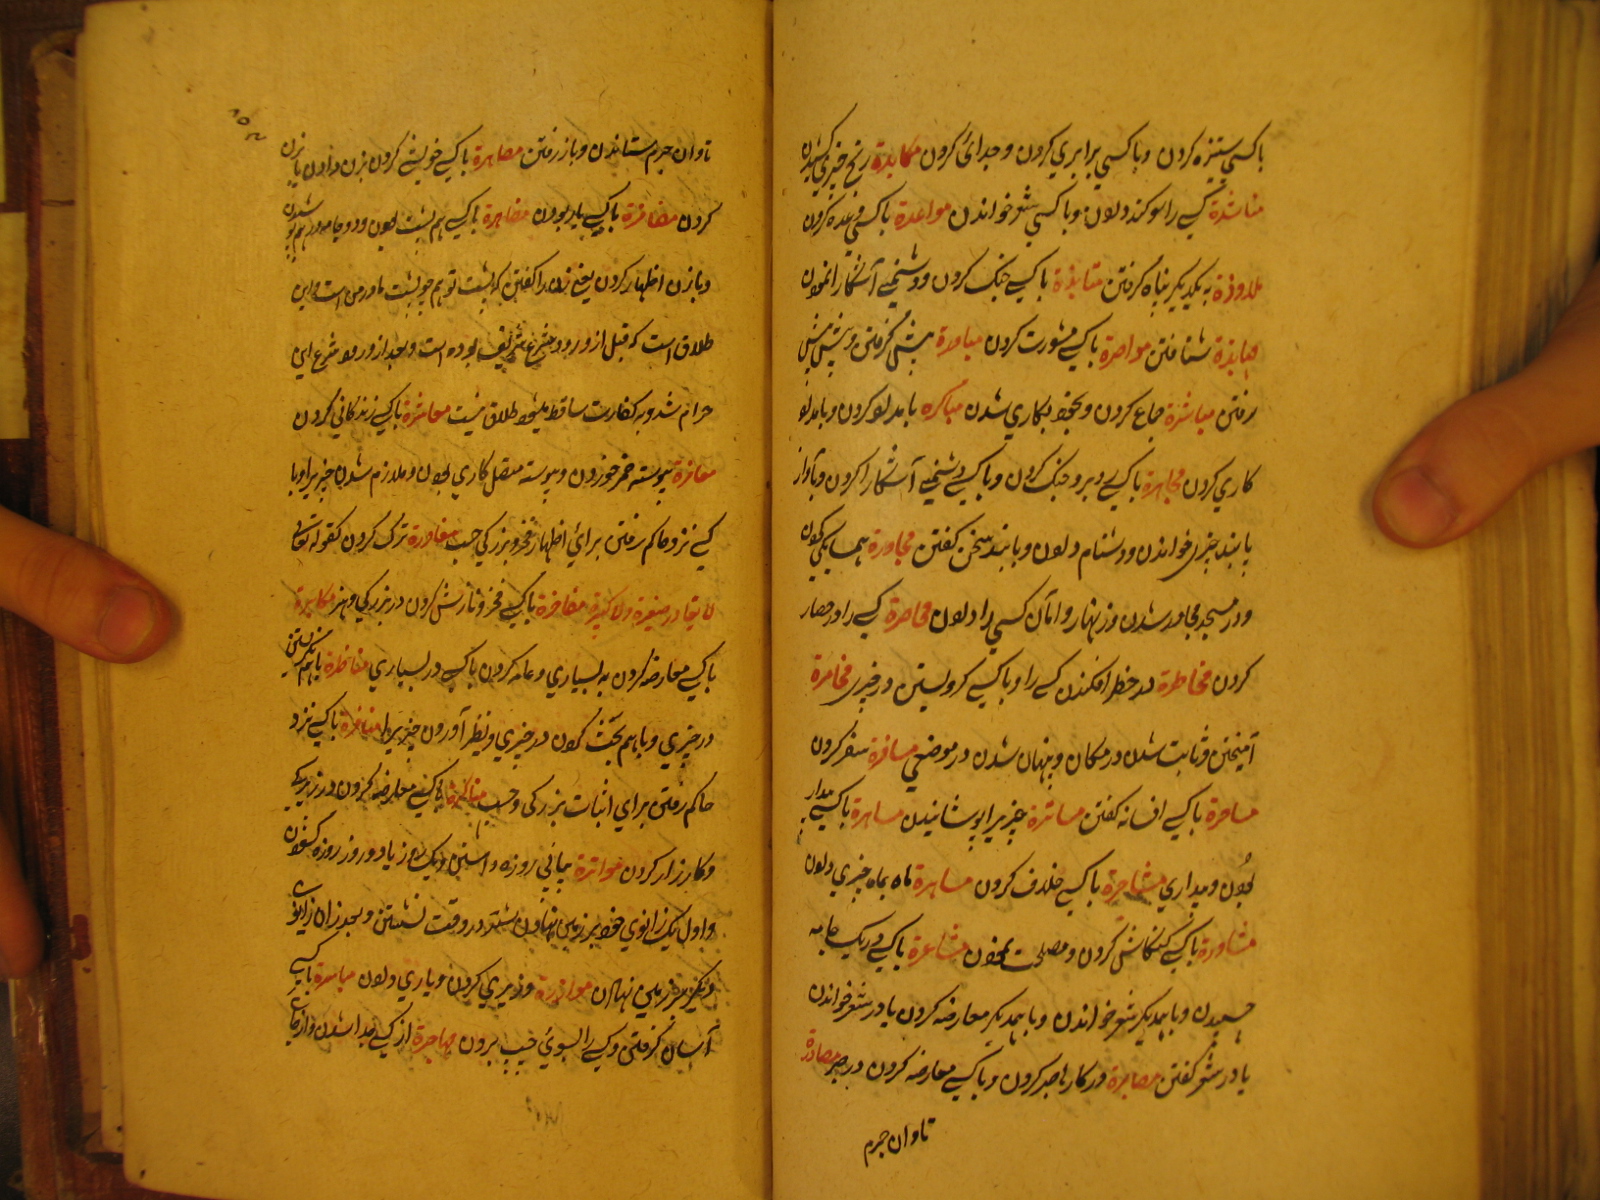 باکسي ستیزه کردن و باکسي برابري کردن و جدائی کردن مکابدة رنج چیزي کشیدن
مناشدة کسے را سوکند دادن و باکسي شعر خواندن مواعدة باکسے وعده کردن
ملاوذة به یکدیکر پناه کرفتن منابذة باکسے جنک کردن و دشمنے آشکارا نمودن
شتافتن موامرة باکسے مشورت کردن مبادرة پیشي کرفتن و پیش
رفتن مباشرة جماع کردن و بخود بکاري شدن مباکرة بامداد کردن و بامداد
کاري کردن مجاهرة باکسے روبرو جنک کردن و باکسے دشمنے آشکارا کردن و بآواز
بلند چیزي خواندن و دشنام دادن و بلند سخن کفتن مجاورة همسایکي کردن
و در مسجد مجاور شدن و زنهار و امان کسي را دادن محاصرة کسے را در حصار
کردن مخاطرة در خطر افکندن کسے را و باکسے کرو بستن در چیزي مخامرة
آمیختن و ثابت شدن در مکان و پنهان شدن در موضعي مسافرة سفر کردن
مسامرة باکسے افسانه کفتن مساترة چیزیرا پوشانیدن مساهرة باکسے بیدار
بودن و بیداري مشاجرة باکسے خلاف کردن مشاهرة ماه بماه چیزي دادن
مشاورة باکسے کنکاش کردن و مصلحت نمودن مشاعرة باکسے در یک جامه
خسپیدن و باهمدیکر شعر خواندن و باهمدیکر معارضه کردن یا در شعر خواندن
یا در شعر کفتن مصابرة در کارها صبر کردن و باکسے معارضه کردن در صبر مصادرة
تاوان جرم
تاوان جرم ستاندن و باز رفتن مصاهرة باکسے خویشے کردن بزن دادن یا بزن
کردن مضافرة باکسے یار بودن مظاهرة باکسے هم پشت بودن و دو جامه در هم پوشیدن
و با زن اظهار کردن یعنے زن را کفتن که پشت تو هم چو پشت مادر من است و این
طلاق است که قبل از ورود شرع شریف بوده است و بعد از ورود شرع این
حرام شد و به کفارت ساقط میشود طلاق نیست معاشرة باکسے زندکاني کردن
معاقرة پیوسته خمر خوردن و پیوسته متصل کاري بودن و ملازم شدن چیزیرا و با
کسے نزد حاکم رفتن براي اظهار فخر و بزرکي حسب مغادرة ترک کردن کقوله تعالی
لا یغادر صغیرة ولا کبیرة مفاخرة باکسے فخر و نازش کردن در بزرکي و هنر مکاثرة
باکسے معارضه کردن به بسیاري و غلبه کردن باکسے در بسیاري مناظرة باهم نکریستن
در چیزي و باهم بحث کردن در چیزي و نظر آوردن چیزیرا منافرة باکسے نزد
حاکم رفتن براي اثبات بزرکي و حسب مناکرة باکسے معارضه کردن در زیرکے
و کارزار کردن مواترة پیاپي روزه داشتن و یک روز یا دو روز روزه کشودن
و اول یک زانوي خود بر زمین نهادن شتر در وقت نشستن و بعد زان زانوی
دیکر بر زمین نهادن موازرة وزیري کردن و یاري دادن میاسرة باکسے
آسان کرفتن و کسے را بسوي چپ بردن مهاجرة از کسے جدا شدن و از جاي